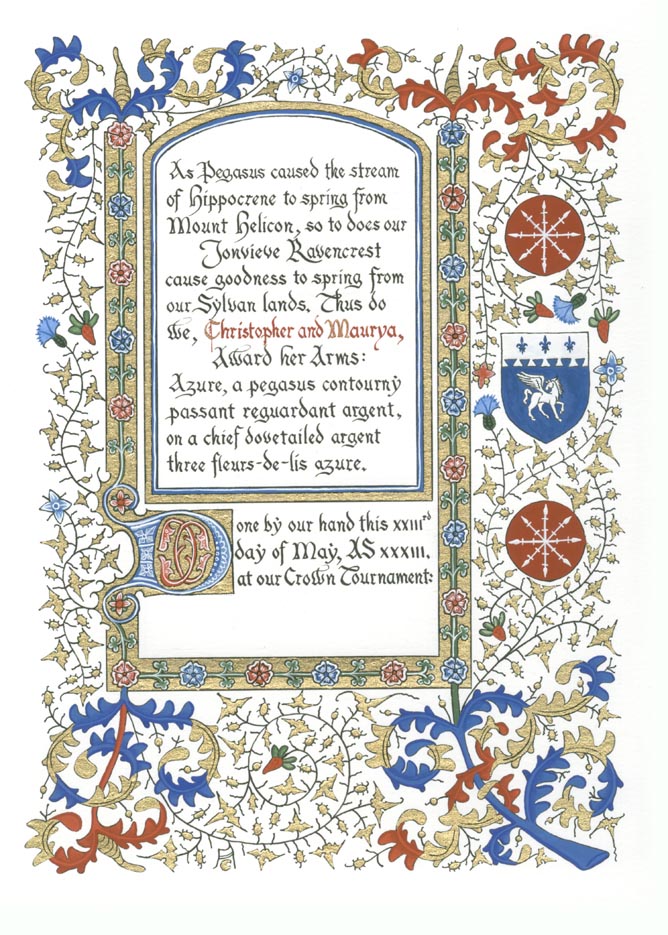 As Pegasus caused the stream
of Hippocrene to spring from
Mount Helicon, so to does our
Jonvieve Ravencrest
cause goodness to spring from
our Sylvan lands. Thus do
We, Christopher and Maurya,
Award her Arms:
Azure, a pegasus contourny
passant reguardant argent,
on a chief dovetailed argent
three fleurs-de-lis azure.
Done by our hand this xxiiird
day of May, AS xxxiii.
at our Crown Tournament: